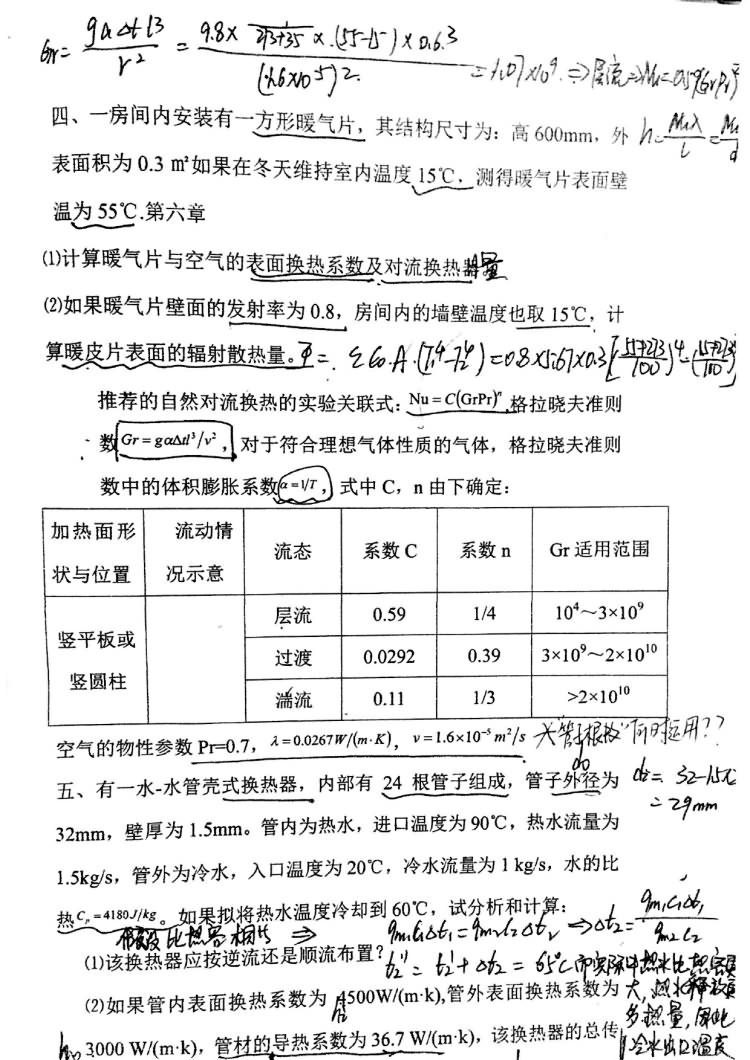 Gr = gαΔtl3 / ν2 = 9.8× 1/273+35 ×(55-15)×0.6.3 / (1.6×10-5)2. =1.07×10^9 ⇒层流⇒Nu=0.59(GrPr)
四、一房间内安装有一方形暖气片，其结构尺寸为：高 600mm，外
h= Nuλ/l =
表面积为 0.3 ㎡如果在冬天维持室内温度 15℃，测得暖气片表面壁
温为 55℃.第六章
⑴计算暖气片与空气的表面换热系数及对流换热量
⑵如果暖气片壁面的发射率为 0.8，房间内的墙壁温度也取 15℃，计
算暖皮片表面的辐射散热量。Φ= εC₀.A.(T₁⁴-T₂⁴)=0.8×5.67×0.3[(55+273/100)⁴-(15+273/100)
推荐的自然对流换热的实验关联式：Nu = C(GrPr)ⁿ,格拉晓夫准则
数 Gr = gαΔtl³/ν²，对于符合理想气体性质的气体，格拉晓夫准则
数中的体积膨胀系数 α=1/T，式中 C，n 由下确定：
加热面形状与位置 流动情况示意 流态 系数 C 系数 n Gr 适用范围
竖平板或竖圆柱 层流 0.59 1/4 10⁴～3×10⁹
过渡 0.0292 0.39 3×10⁹～2×10¹⁰
湍流 0.11 1/3 >2×10¹⁰
空气的物性参数 Pr=0.7，λ=0.0267W/(m·K)，ν=1.6×10⁻⁵ m²/s
五、有一水-水管壳式换热器，内部有 24 根管子组成，管子外径为
32mm，壁厚为 1.5mm。管内为热水，进口温度为 90℃，热水流量为
=29mm
1.5kg/s，管外为冷水，入口温度为 20℃，冷水流量为 1 kg/s，水的比
热 Cₚ=4180J/kg。如果拟将热水温度冷却到 60℃，试分析和计算：
⇒ qm₁C₁Δt₁=qm₂C₂Δt₂ ⇒Δt₂= qm₁C₁Δt₁/qm₂C₂
⑴该换热器应按逆流还是顺流布置？t₂''= t₂'+Δt₂ = 65℃
⑵如果管内表面换热系数为 4500W/(m·k),管外表面换热系数为
3000 W/(m·k)，管材的导热系数为 36.7 W/(m·k)，该换热器的总传